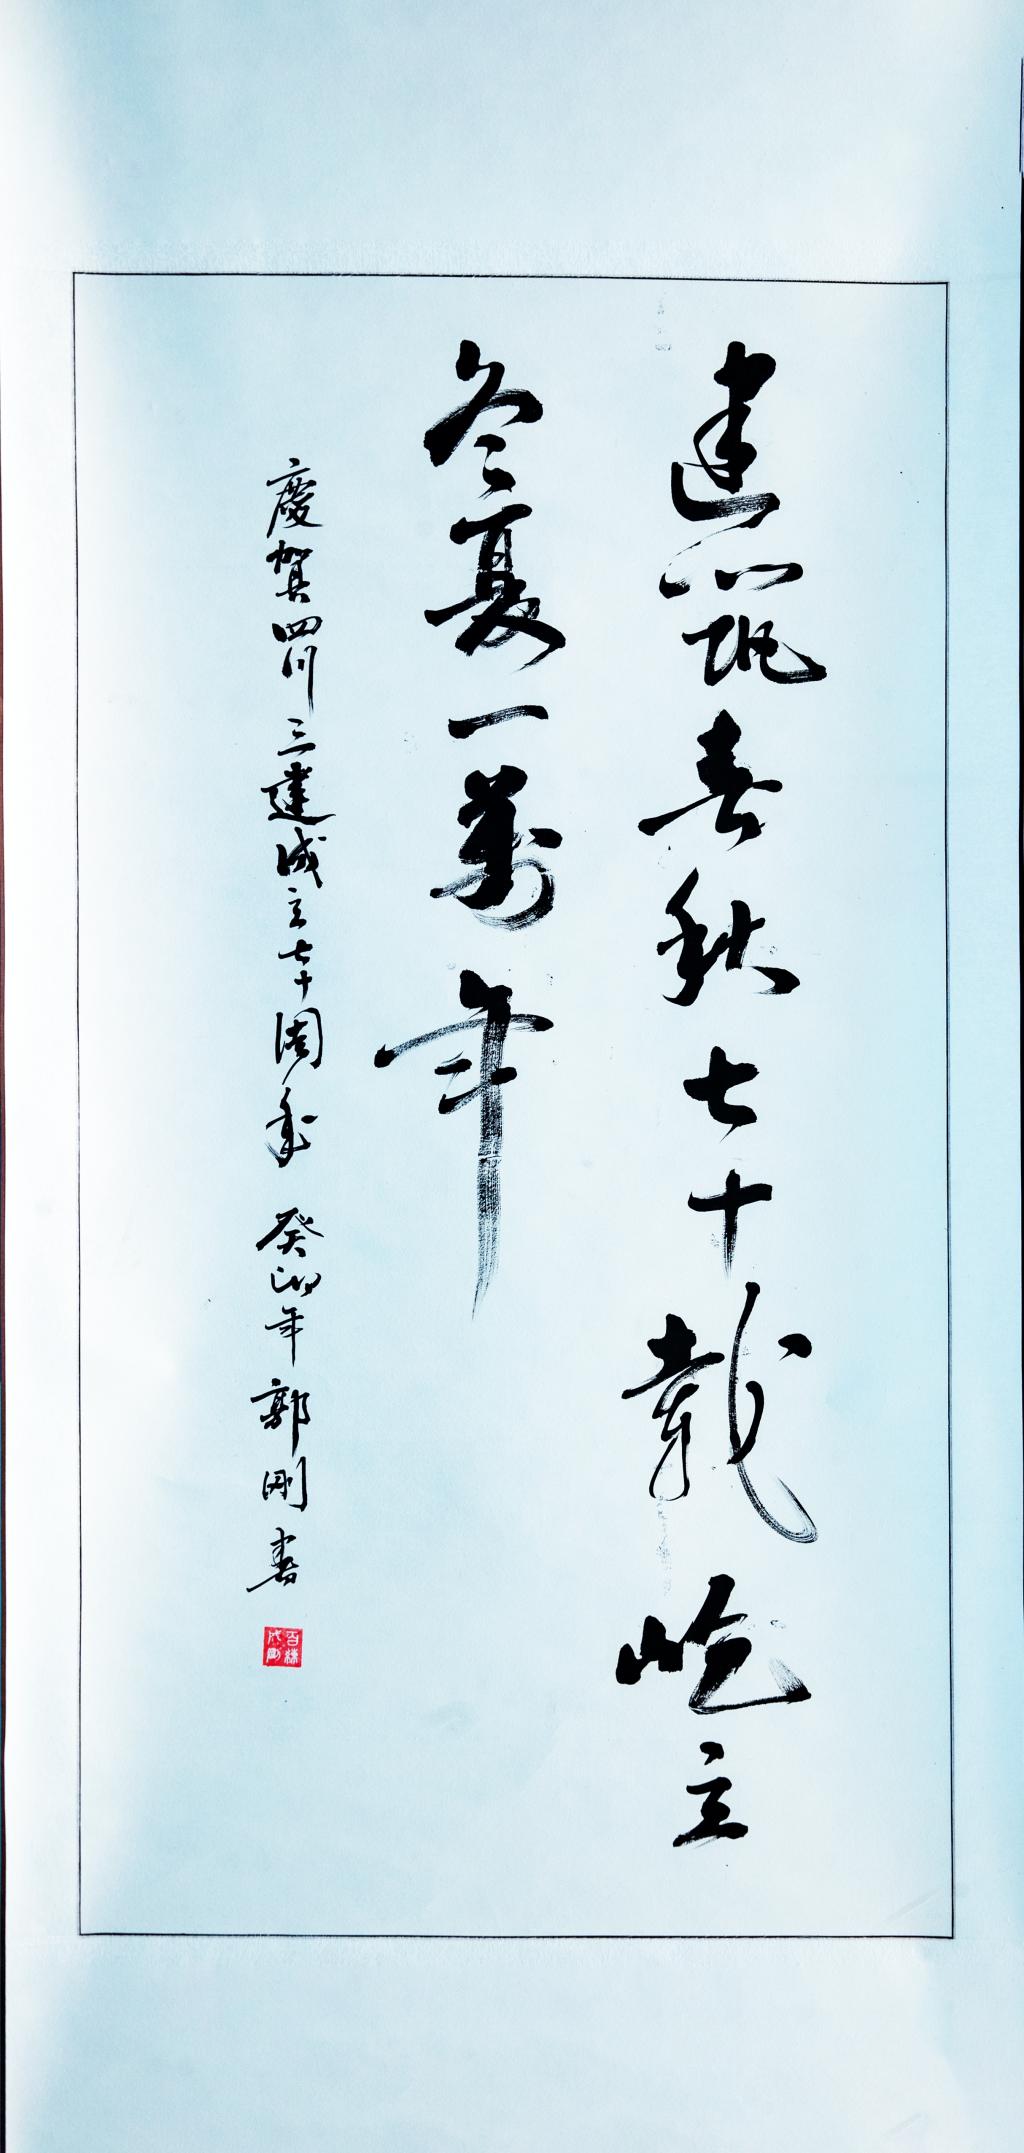 建筑春秋七十载屹立
冬夏一萬年
慶賀四川三建成立七十周年 癸卯年 郭剛書